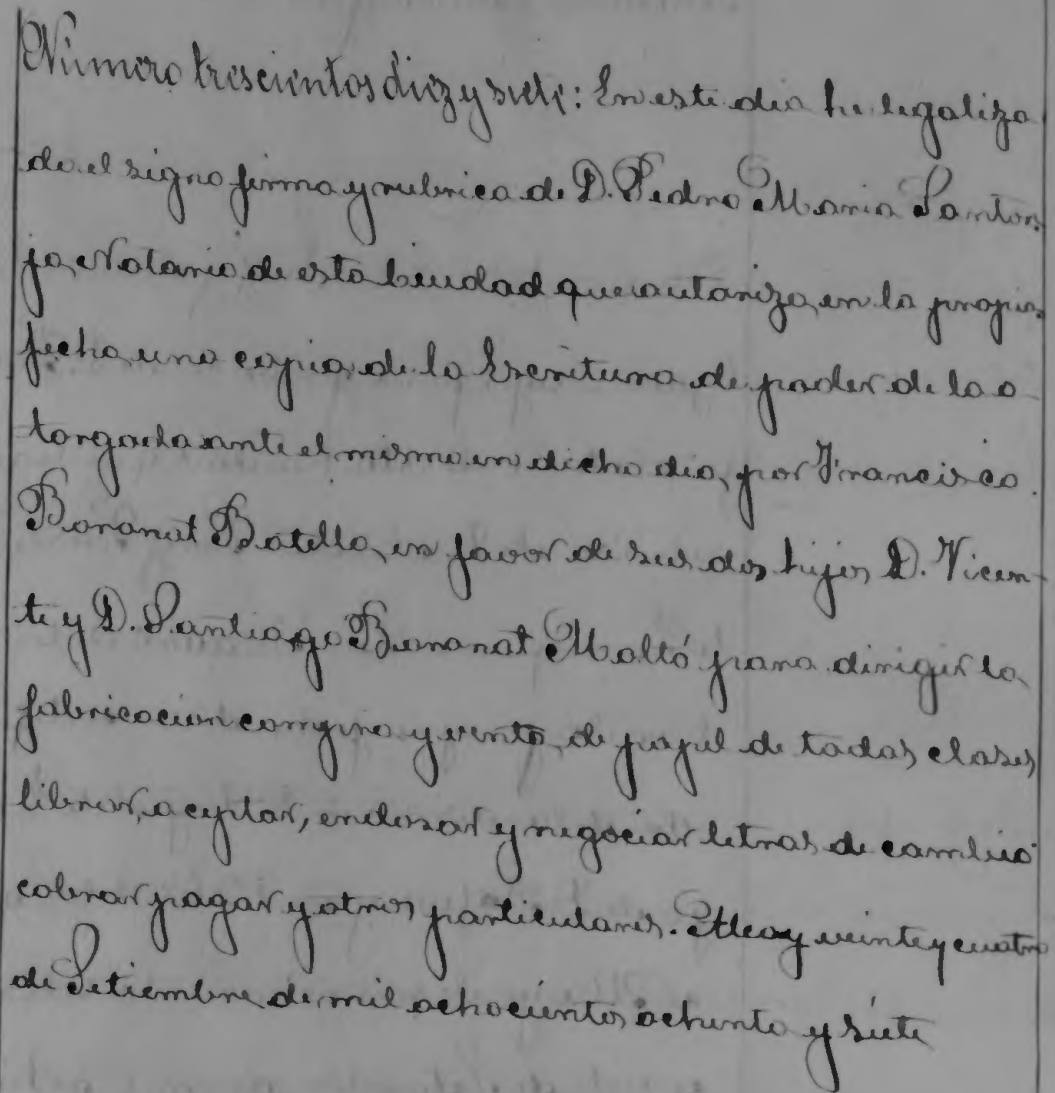 Número trescientos diez y siete: En este dia he legaliza
do el signo firma y rubrica de D. Pedro Maria Santon
ja, Notario de esta Ciudad que autoriza, en la propia
fecha, una copia, de la Escritura de poder de la o
torgada ante el mismo en dicho dia, por Francisco
Boronat Botella, en favor de sus dos hijos D. Vicen-
te y D. Santiago Boronat Moltó para dirigir la
fabricacion compra y venta, de papel de todas clases
librar, aceptar, endosar y negociar letras de cambio
cobrar pagar y otros particulares. Alcoy veinte y cuatro
de Setiembre de mil ochocientos ochenta y siete